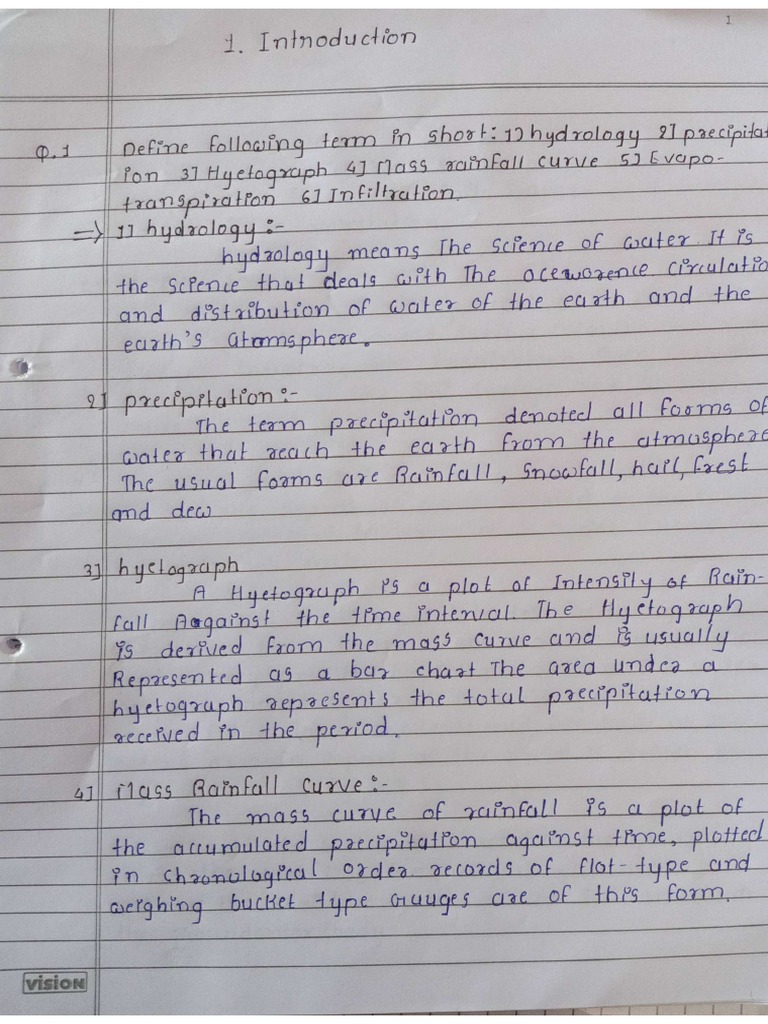 1
1. Introduction
Q.1 Define following term in short: 1) hydrology 2] precipitat
ion 3] Hyetograph 4] Mass rainfall curve 5] Evapo-
transpiration 6] Infiltration.
=> 1] hydrology :-
hydrology means The Science of water. It is
the science that deals with The acewarence circulatio
and distribution of water of the earth and the
earth's atomsphere.
2] precipitation :-
The term precipitation denoted all forms of
water that reach the earth from the atmosphere
The usual forms are Rainfall, snowfall, hail, frest
and dew
3] hyetograph
A Hyetograph is a plot of Intensity of Rain-
fall Aagainst the time interval. The Hyetograph
is derived from the mass curve and is usually
Represented as a bar chart The area under a
hyetograph represents the total precipitation
received in the period.
4] Mass Rainfall Curve :-
The mass curve of rainfall is a plot of
the accumulated precipitation against time, plotted
in chronological order records of flot-type and
weighing bucket type Gauges are of this form.
vision